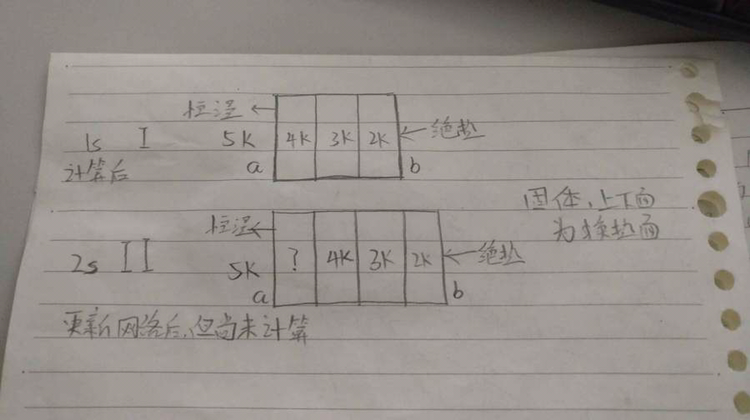 恒温
1s I 5K 4K 3K 2K 绝热
计算后 a b
固体，上下面
为换热面
恒温
2s II 5K ? 4K 3K 2K 绝热
a b
更新网络后，但尚未计算